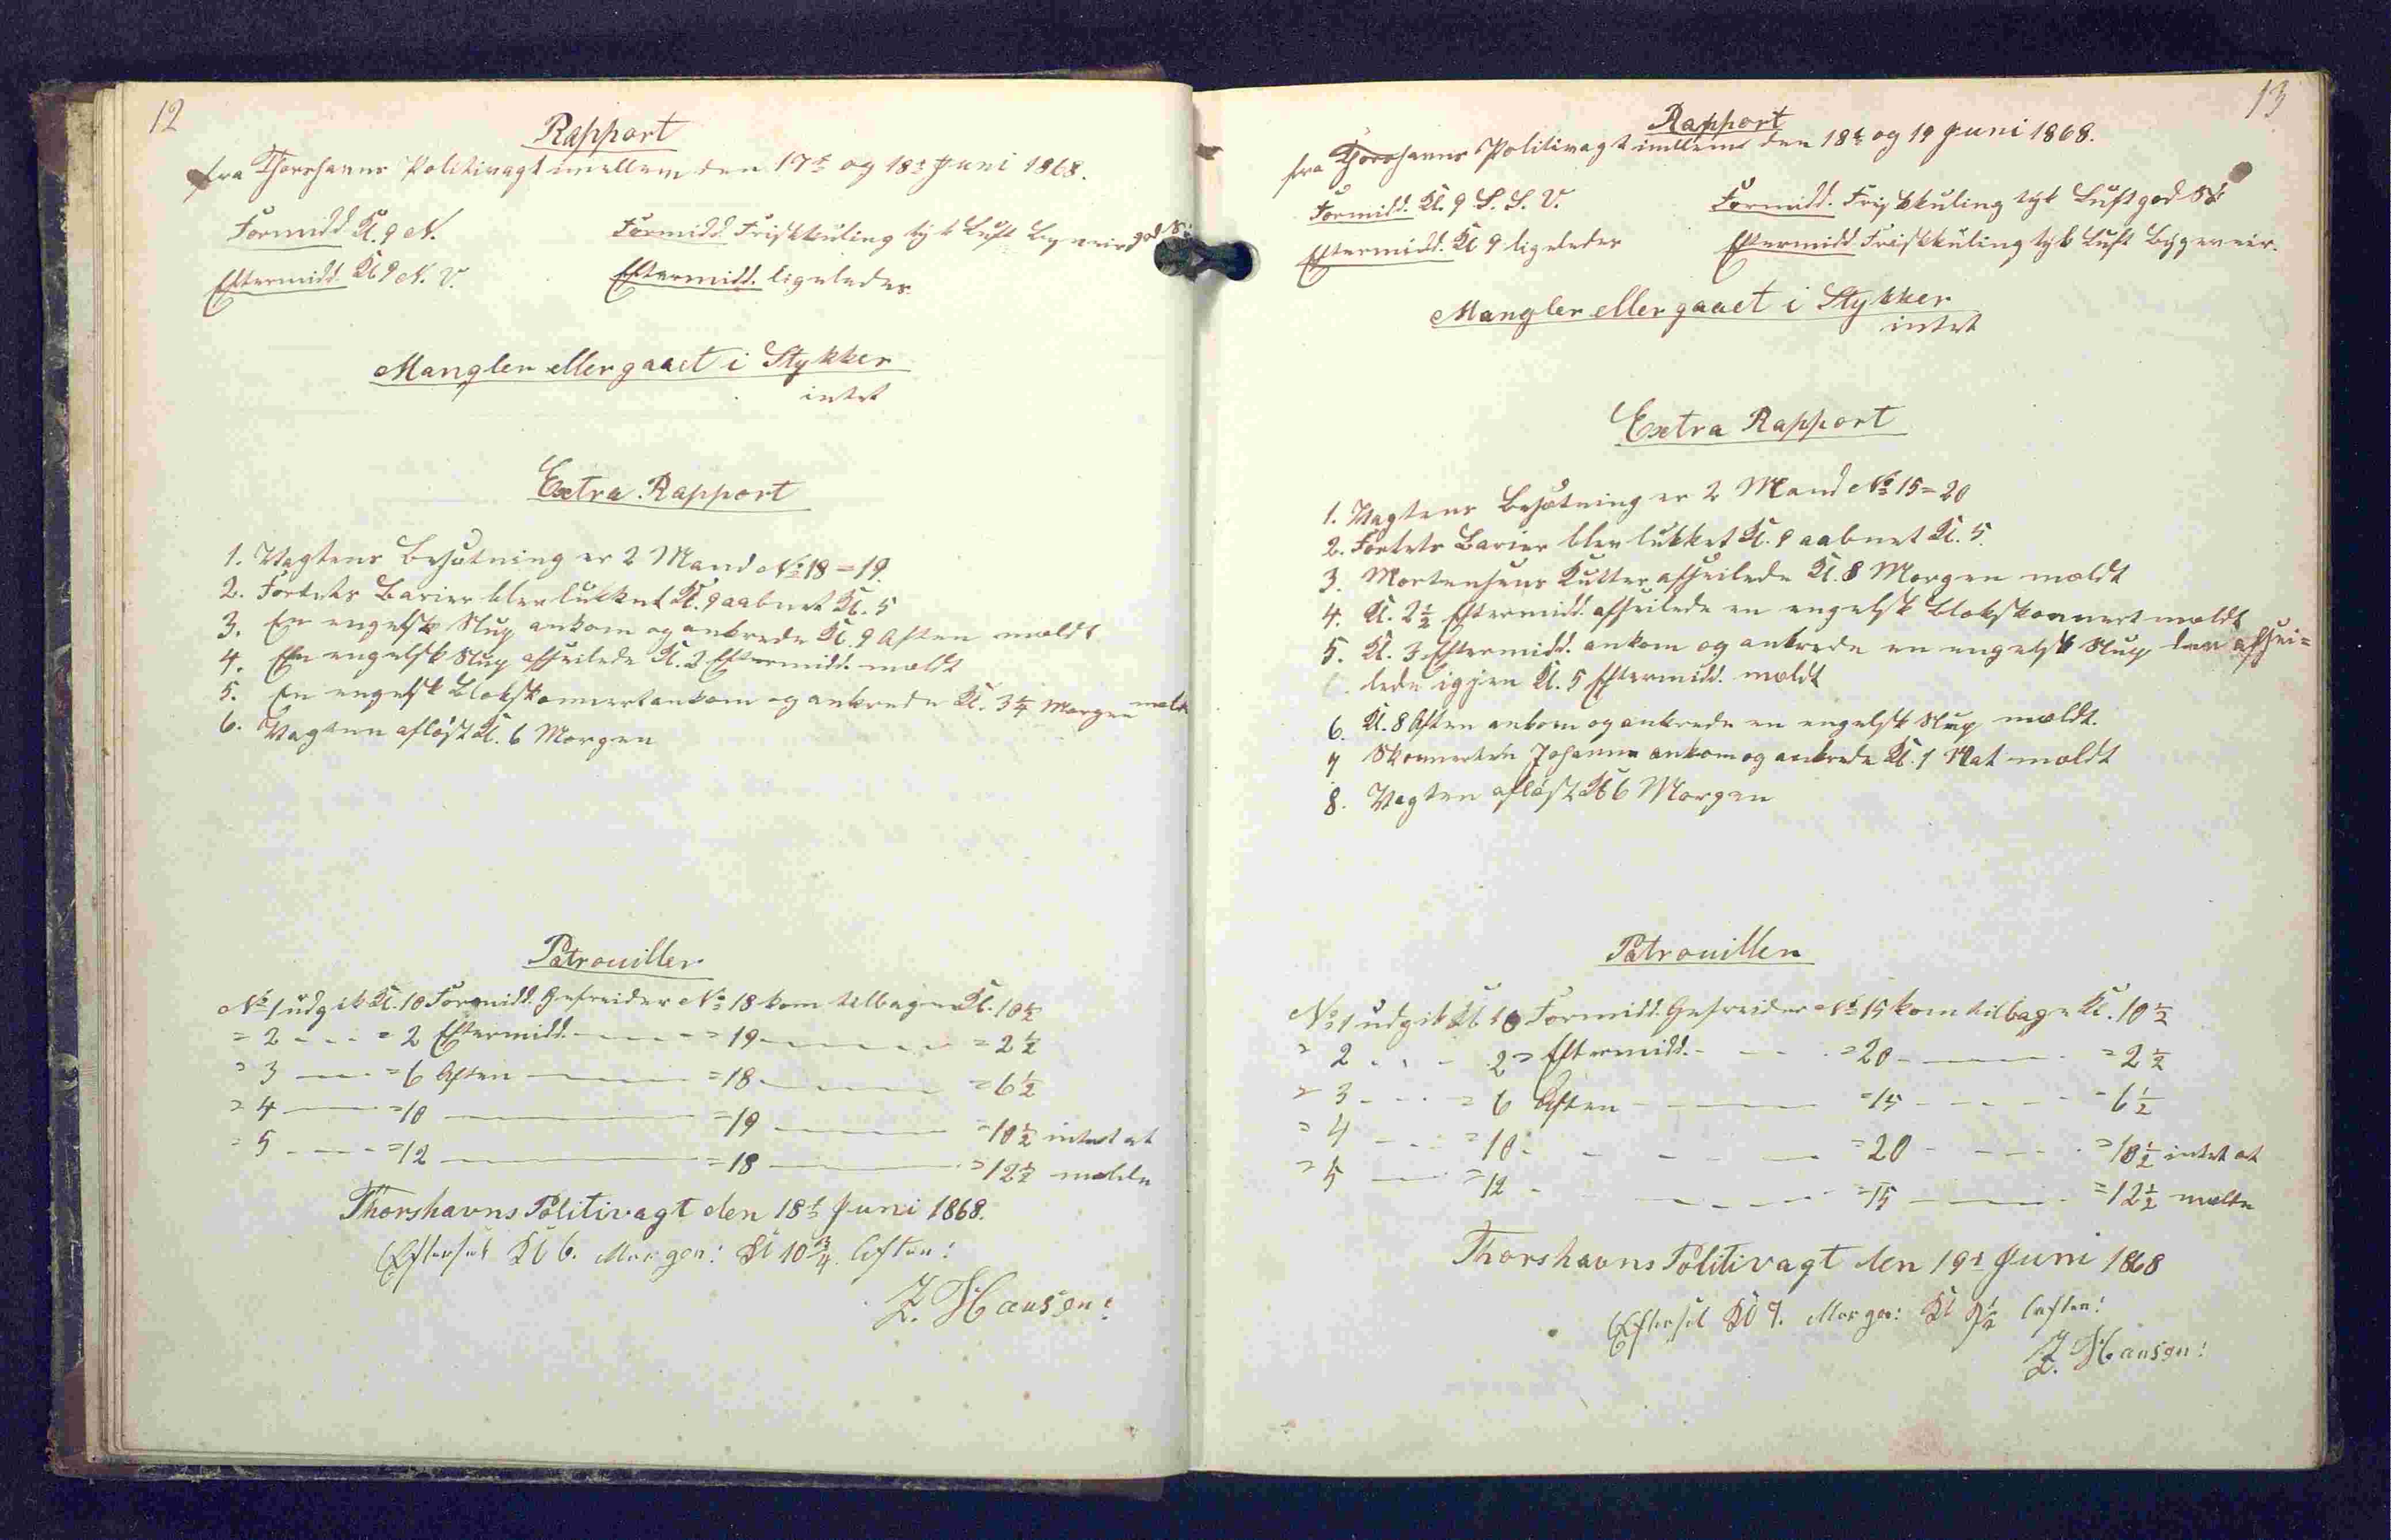 12
Rapport
fra Thorshavns Politivagt imellem den 17de og 18de Juni 1868.
Formidd. Kl. 9 N. Formidd. Friskkuling tyk Luft Bygeveir god
Eftermidd. Kl 9 N. V. Eftermidd. ligeledes
Mangler eller gaaet i Stykker
intet
Extra Rapport
1. Vagtens Besætning er 2 Mand No 18 = 19.
2. Fortets Barier blev lukket Kl. 9 aabnet Kl. 5
3. En engelsk Slup ankom og ankrede Kl. 9 Aften mældt
4. En engelsk Slup afseilede Kl. 2 Eftermidd. mældt
5. En engelsk Blokskonnert ankom og ankrede Kl. 3 1/4 Morgen mældt
6. Vagten afløst Kl. 6 Morgen
Patrouiller
No 1 udgik Kl. 10 Formidd. Gefreider No 18 kom tilbage Kl. 10 1/2
= 2 - - - = 2 Eftermidd. - - - = 19 - - - = 2 1/2
= 3 - - - = 6 Aften - - - = 18 - - - = 6 1/2
= 4 - - - = 10 - - - = 19 - - - = 10 1/2 intet at
= 5 - - - = 12 - - - = 18 - - - = 12 1/2 mælde
Thorshavns Politivagt den 18de Juni 1868.
Efterset Kl 6. Morgen: Kl 10 3/4. Aften!
Z. Hansen:
13
Rapport
fra Thorshavns Politivagt imellem den 18de og 19 Juni 1868.
Formidd. Kl. 9 S. S. V. Formidd. Friskkuling tyk Luft god
Eftermidd. Kl 9 ligeledes Eftermidd. Friskkuling tyk Luft Bygeveir.
Mangler eller gaaet i Stykker
intet
Extra Rapport
1. Vagtens Besætning er 2 Mand No 15 = 20
2. Fortets Barier blev lukket Kl. 9 aabnet Kl. 5.
3. Mortensens Kutter afseilede Kl. 8 Morgen mældt
4. Kl. 2 1/2 Eftermidd. afseilede en engelsk Blokskonnert mældt
5. Kl. 3 Eftermidd. ankom og ankrede en engelsk Slup den afsei=
lede igjen Kl. 5 Eftermidd. mældt
6. Kl. 8 Aften ankom og ankrede en engelsk Slup mældt.
7 Skonnerten Johanne ankom og ankrede Kl. 1 Nat mældt
8. Vagten afløst Kl 6 Morgen
Patrouillen
No 1 udgik Kl 10 Formidd. Gefreider No 15 kom tilbage Kl. 10 1/2
= 2 - - - 2 = Eftermidd. - - - = 20 - - - = 2 1/2
= 3 - - - = 6 Aften - - - = 15 - - - = 6 1/2
= 4 - - - = 10 - - - = 20 - - - = 10 1/2 intet at
= 5 - - - = 12 - - - = 15 - - - = 12 1/2 mælde
Thorshavns Politivagt den 19de Juni 1868
Efterset Kl 7. Morgen: Kl 9 1/2 Aften!
Z. Hansen: